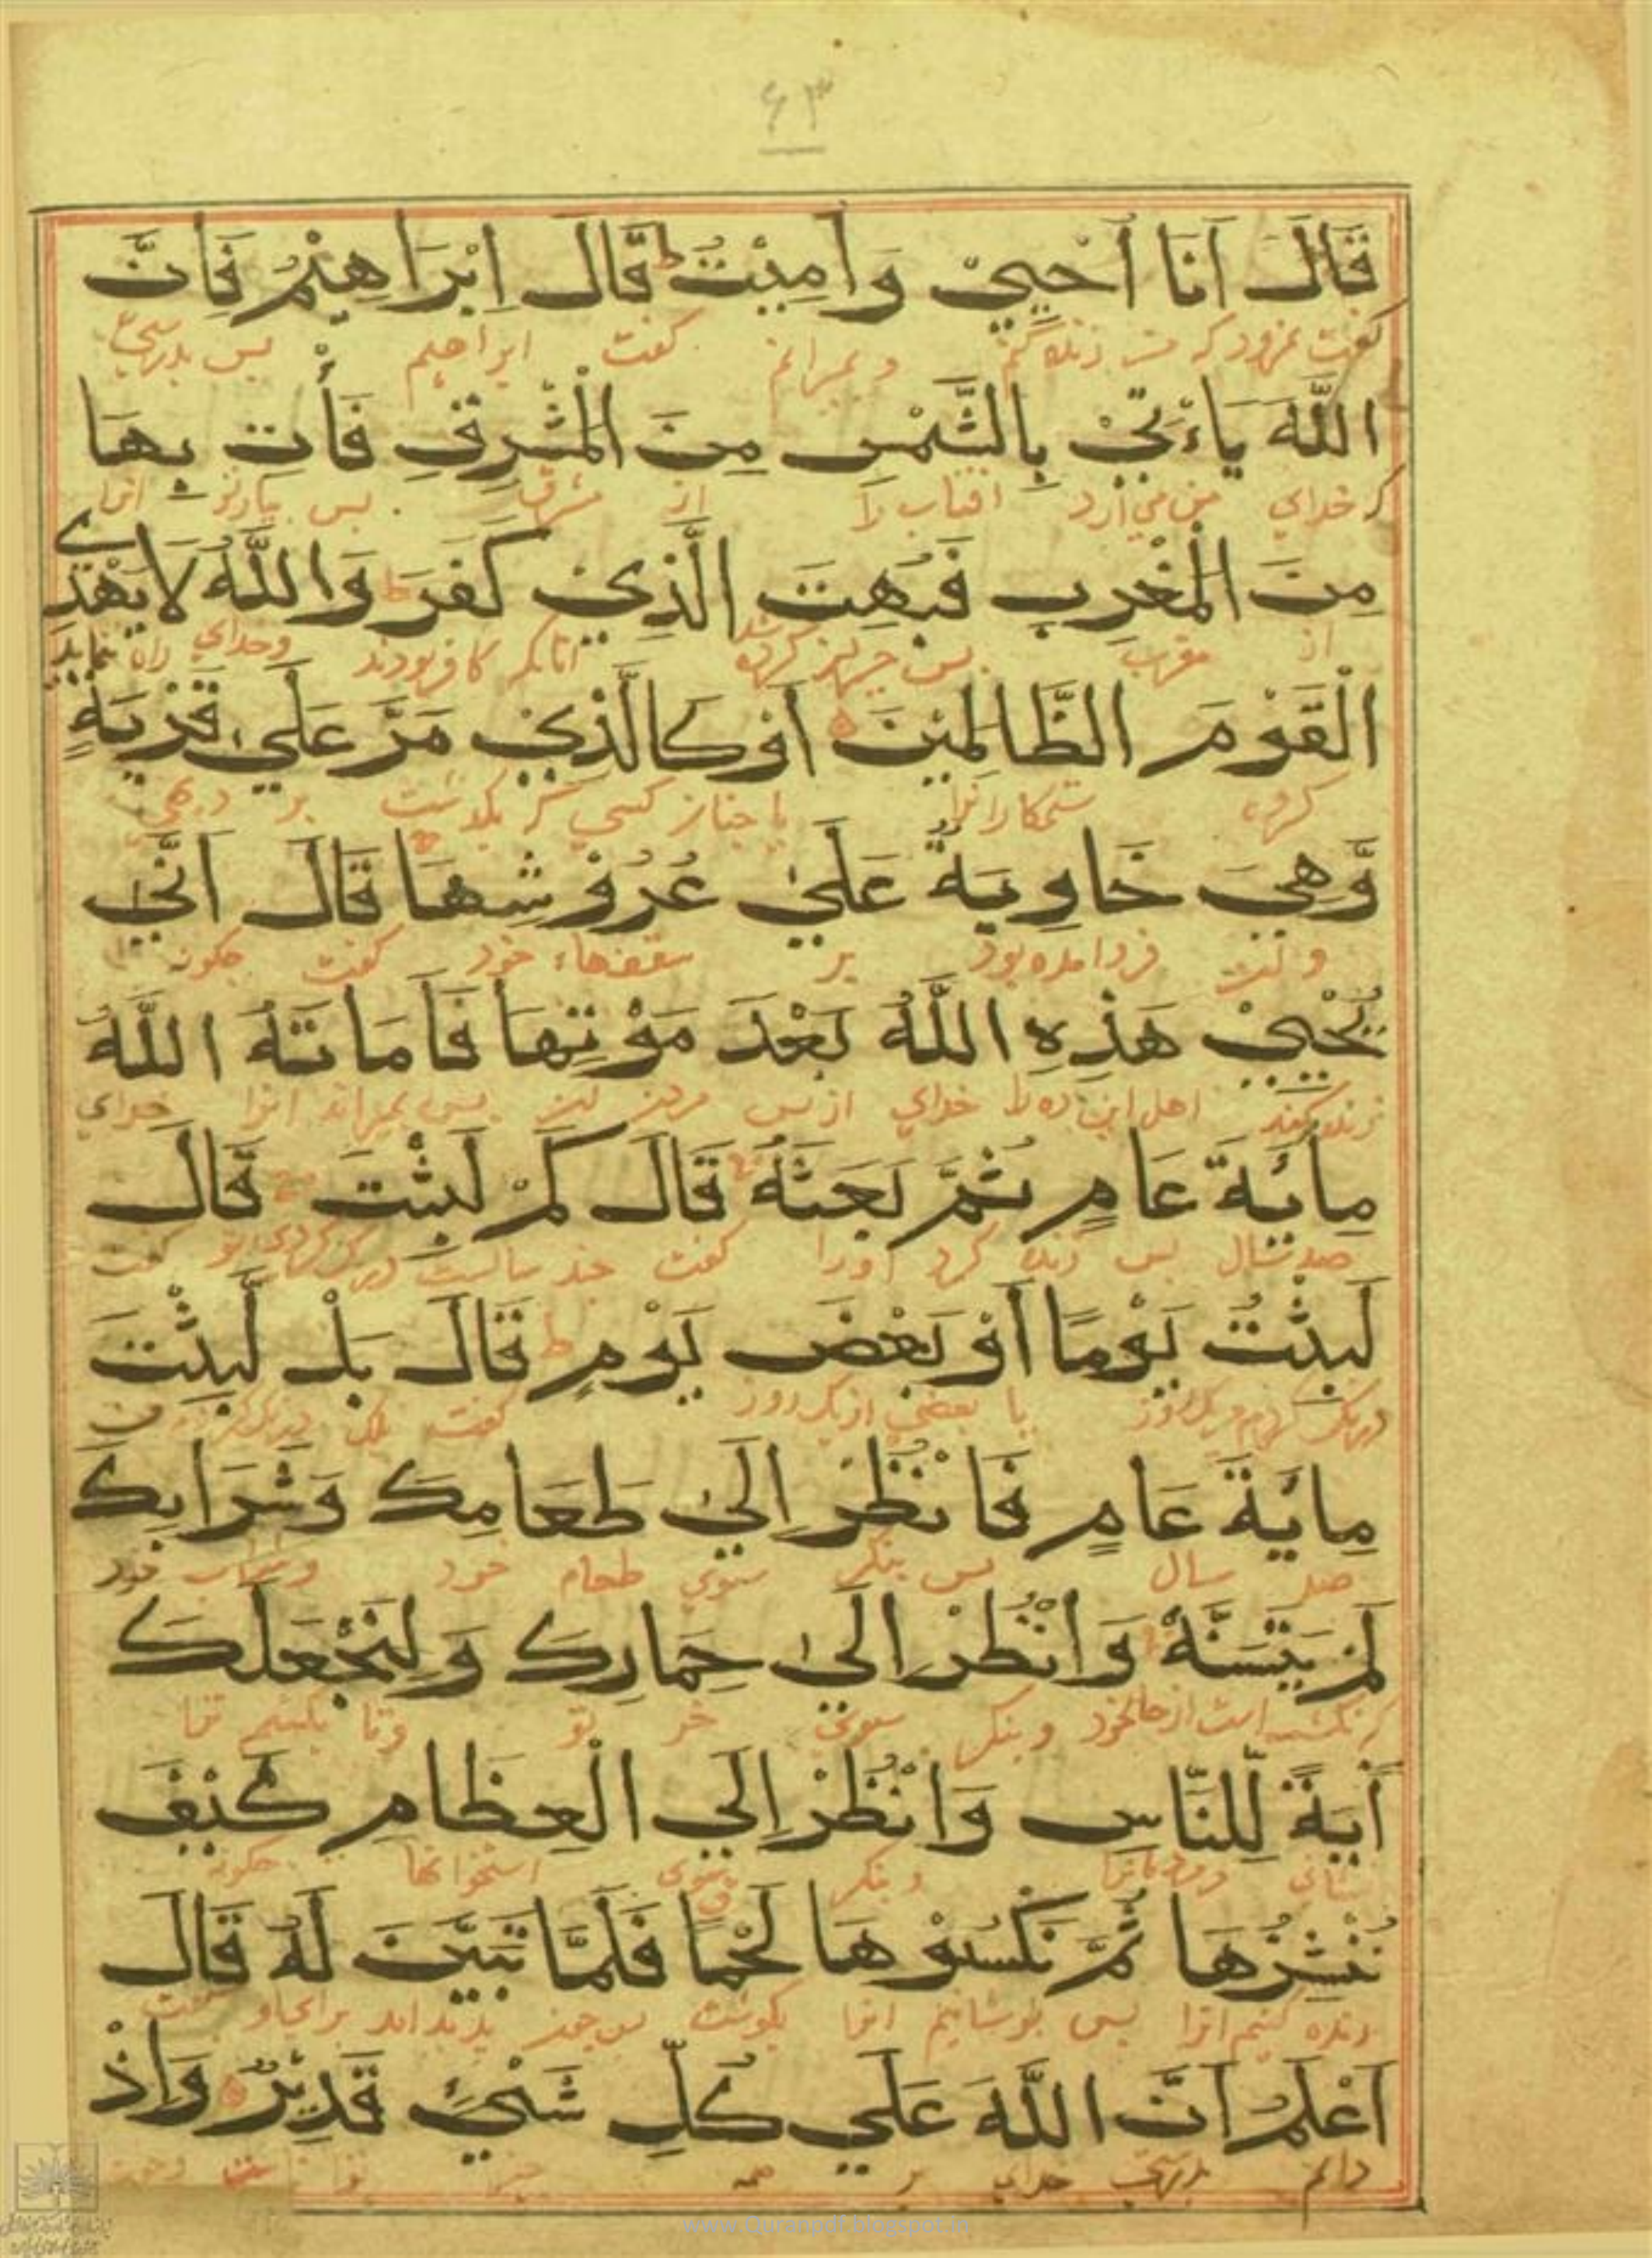 ۶۳
قَالَ اَنَا اُحْيِيْ وَاُمِيْتُ ط قَالَ اِبْرَاهِيْمُ فَاِنَّ
گفت نمرود که من زنده کنم و بمیرانم گفت ابراهیم پس بدرستی
اللَّهَ يَاءْتِيْ بِالشَّمْسِ مِنَ الْمَشْرِقِ فَأْتِ بِهَا
که خدای من می آرد افتاب را از مشرق پس بیار تو انرا
مِنَ الْمَغْرِبِ فَبُهِتَ الَّذِيْ كَفَرَ ط وَاللَّهُ لَا يَهْدِے
از مغرب پس انانکه کافر بودند وخدای راه ننماید
الْقَوْمَ الظَّالِمِيْنَ اَوْ كَالَّذِيْ مَرَّ عَلَي قَرْيَةٍ
گروه ستمکارانرا یا چنان کسی که بگذشت بر دیهی
وَّهِيَ خَاوِيَةٌ عَلَيٰ عُرُوْشِهَا قَالَ اَنّٰي
و فرود امده بود بر سقفهاء خود گفت چگونه
يُحْيِيْ هَذِهِ اللَّهُ بَعْدَ مَوْتِهَا فَاَمَاتَهُ اللَّهُ
زنده کند اهل این ده را خدای از پس مردن پس بمیراند انرا خدای
مِائَةَ عَامٍ ثُمَّ بَعَثَهُ ط قَالَ كَمْ لَبِثْتَ قَالَ
صد سال پس زنده کرد اورا گفت چند سالست درنگ کردی تو گفت
لَبِثْتُ يَوْمًا اَوْ بَعْضَ يَوْمٍ ط قَالَ بَلْ لَّبِثْتَ
درنگ کردم یکروز یا بعضی از یکروز گفت بلکه
مِائَةَ عَامٍ فَانْظُرْ اِلَيٰ طَعَامِكَ وَشَرَابِكَ
صد سال پس بنگر سوی طعام خود وشراب خود
لَمْ يَتَسَنَّهْ وَانْظُرْ اِلَيٰ حِمَارِكَ وَلِنَجْعَلَكَ
که نگشته است از حال خود وبنگر سوی خر تو وتا بکنیم ترا
اٰيَةً لِّلنَّاسِ وَانْظُرْ اِلَي الْعِظَامِ كَيْفَ
نشانی مردمانرا وبنگر سوی استخوانها چگونه
نُنْشِزُهَا ثُمَّ نَكْسُوْهَا لَحْمًا فَلَمَّا تَبَيَّنَ لَهُ قَالَ
زنده کنیم انرا پس بپوشانیم انرا بگوشت پس چون پدید امد برای او گفت
اَعْلَمُ اَنَّ اللَّهَ عَلَي كُلِّ شَيْءٍ قَدِيْرٌ وَاِذْ
دانم بدرستی خدای بر همه چیز
www.Quranpdf.blogspot.in